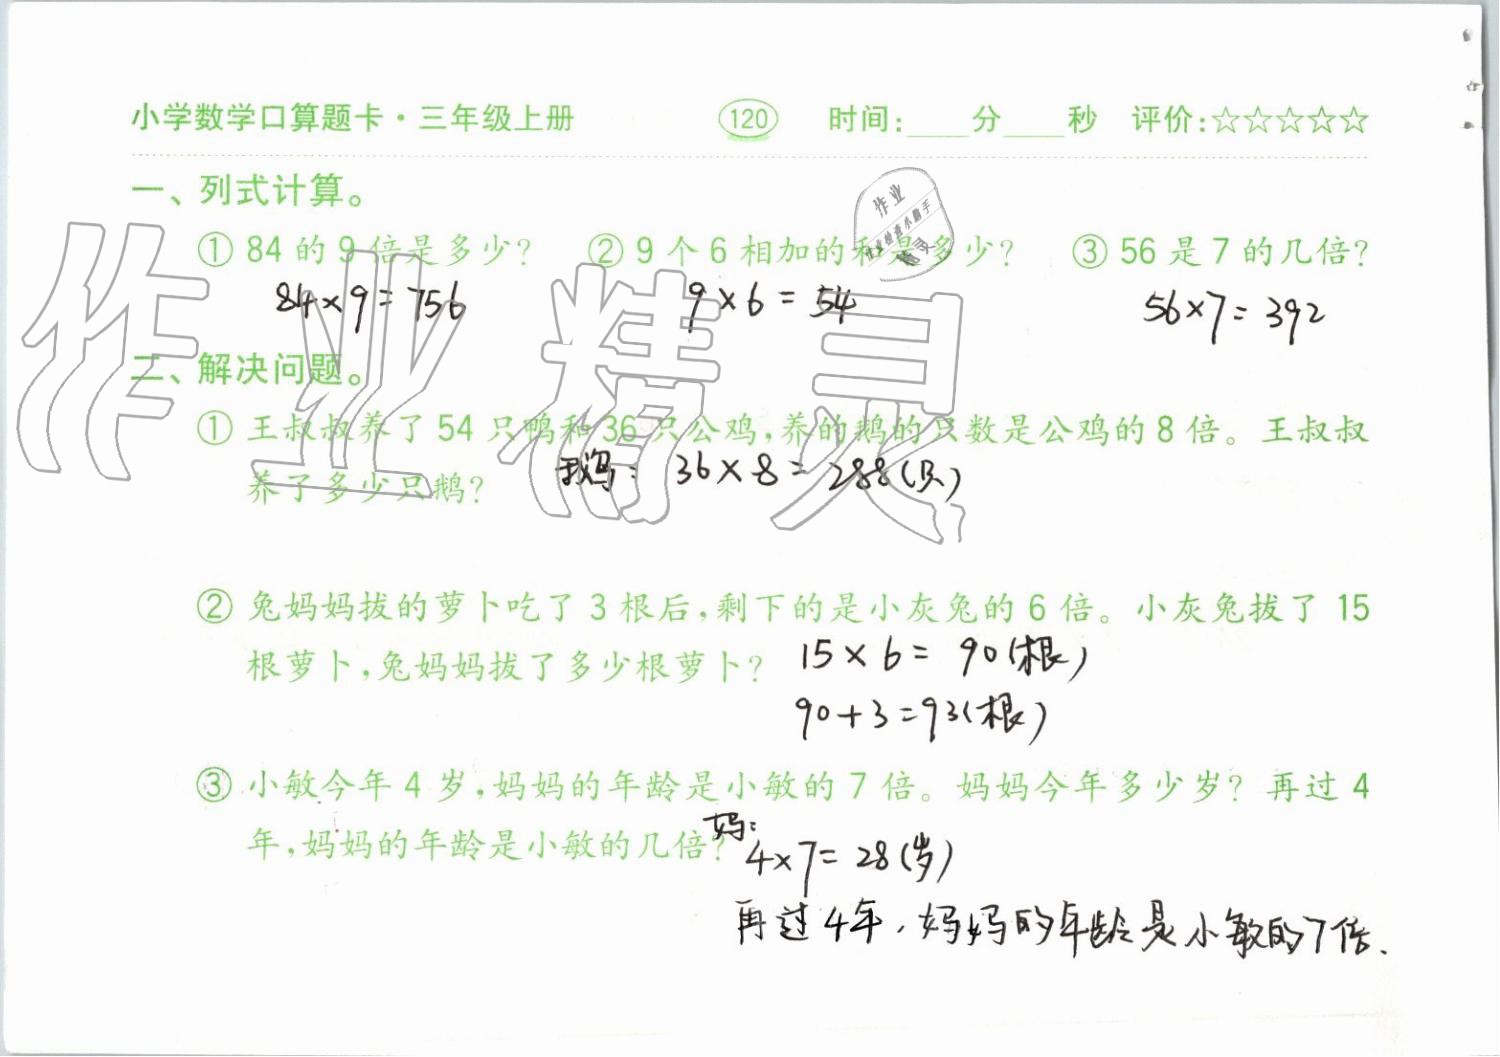 小学数学口算题卡·三年级上册 120 时间:____分____秒 评价:☆☆☆☆☆
一、列式计算。
①84的9倍是多少? ②9个6相加的和是多少? ③56是7的几倍?
84×9=756 9×6=54 56×7=392
二、解决问题。
①王叔叔养了54只鸭和36只公鸡,养的鹅的只数是公鸡的8倍。王叔叔
养了多少只鹅? 鹅: 36×8=288(只)
②兔妈妈拔的萝卜吃了3根后,剩下的是小灰兔的6倍。小灰兔拔了15
根萝卜,兔妈妈拔了多少根萝卜? 15×6=90(根)
90+3=93(根)
③小敏今年4岁,妈妈的年龄是小敏的7倍。妈妈今年多少岁?再过4
年,妈妈的年龄是小敏的几倍? 妈:
4×7=28(岁)
再过4年,妈妈的年龄是小敏的7倍.
作业精灵
作业
作业检查小助手
精灵